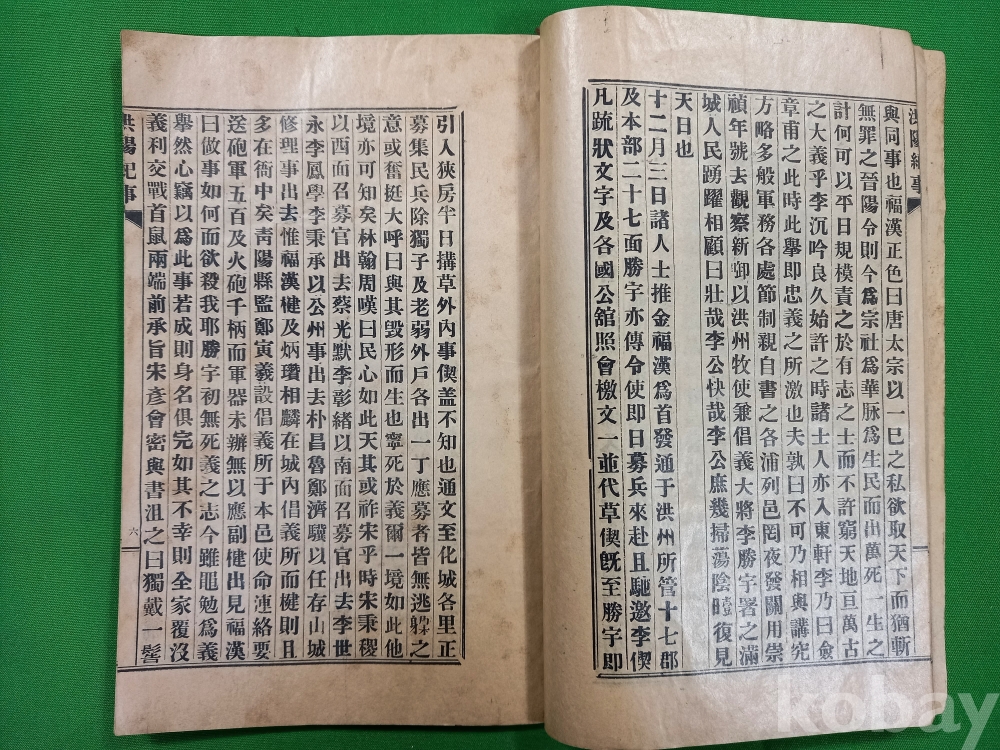 洪陽紀事
與同事也福漢正色曰唐太宗以一巳之私欲取天下而猶斬
無罪之晉陽令則今爲宗社爲華脉爲生民而出萬死一生之
計何可以平日規模責之於有志之士而不許窮天地亘萬古
之大義乎李沉吟良久始許之時諸士人亦入東軒李乃曰僉
章甫之此時此擧即忠義之所激也夫孰曰不可乃相與講究
方略多般軍務各處節制親自書之各浦列邑罔夜發關用崇
禎年號去觀察新卿以洪州牧使兼倡義大將李勝宇署之滿
城人民踴躍相顧曰壯哉李公快哉李公庶幾掃蕩陰曀復見
天日也
十二月三日諸人士推金福漢爲首發通于洪州所管十七郡
及本部二十七面勝宇亦傳令使即日募兵來赴且馳邀李偰
凡䟽狀文字及各國公舘照會檄文一並代草偰旣至勝宇即
引入狹房半日搆草外內事偰盖不知也通文至化城各里正
募集民兵除獨子及老弱外戶各出一丁應募者皆無逃躱之
意或奮挺大呼曰與其毁形而生也寧死於義爾一境如此他
境亦可知矣林翰周嘆曰民心如此天其或祚宋乎時宋秉稷
以西面召募官出去蔡光默李彰緖以南面召募官出去李世
永李鳳學李秉承以公州事出去朴昌魯鄭濟驥以任存山城
修理事出去惟福漢楗及炳瓚相麟在城內倡義所而楗則且
多在衙中矣靑陽縣監鄭寅羲設倡義所于本邑使命連絡要
送砲軍五百及火砲千柄而軍器未辦無以應副楗出見福漢
曰做事如何而欲殺我耶勝宇初無死義之志今雖黽勉爲義
擧然心竊以爲此事若成則身名俱完如其不幸則全家覆沒
義利交戰首鼠兩端前承旨宋彥會密與書沮之曰獨戴一髻
洪陽紀事
六
kobay